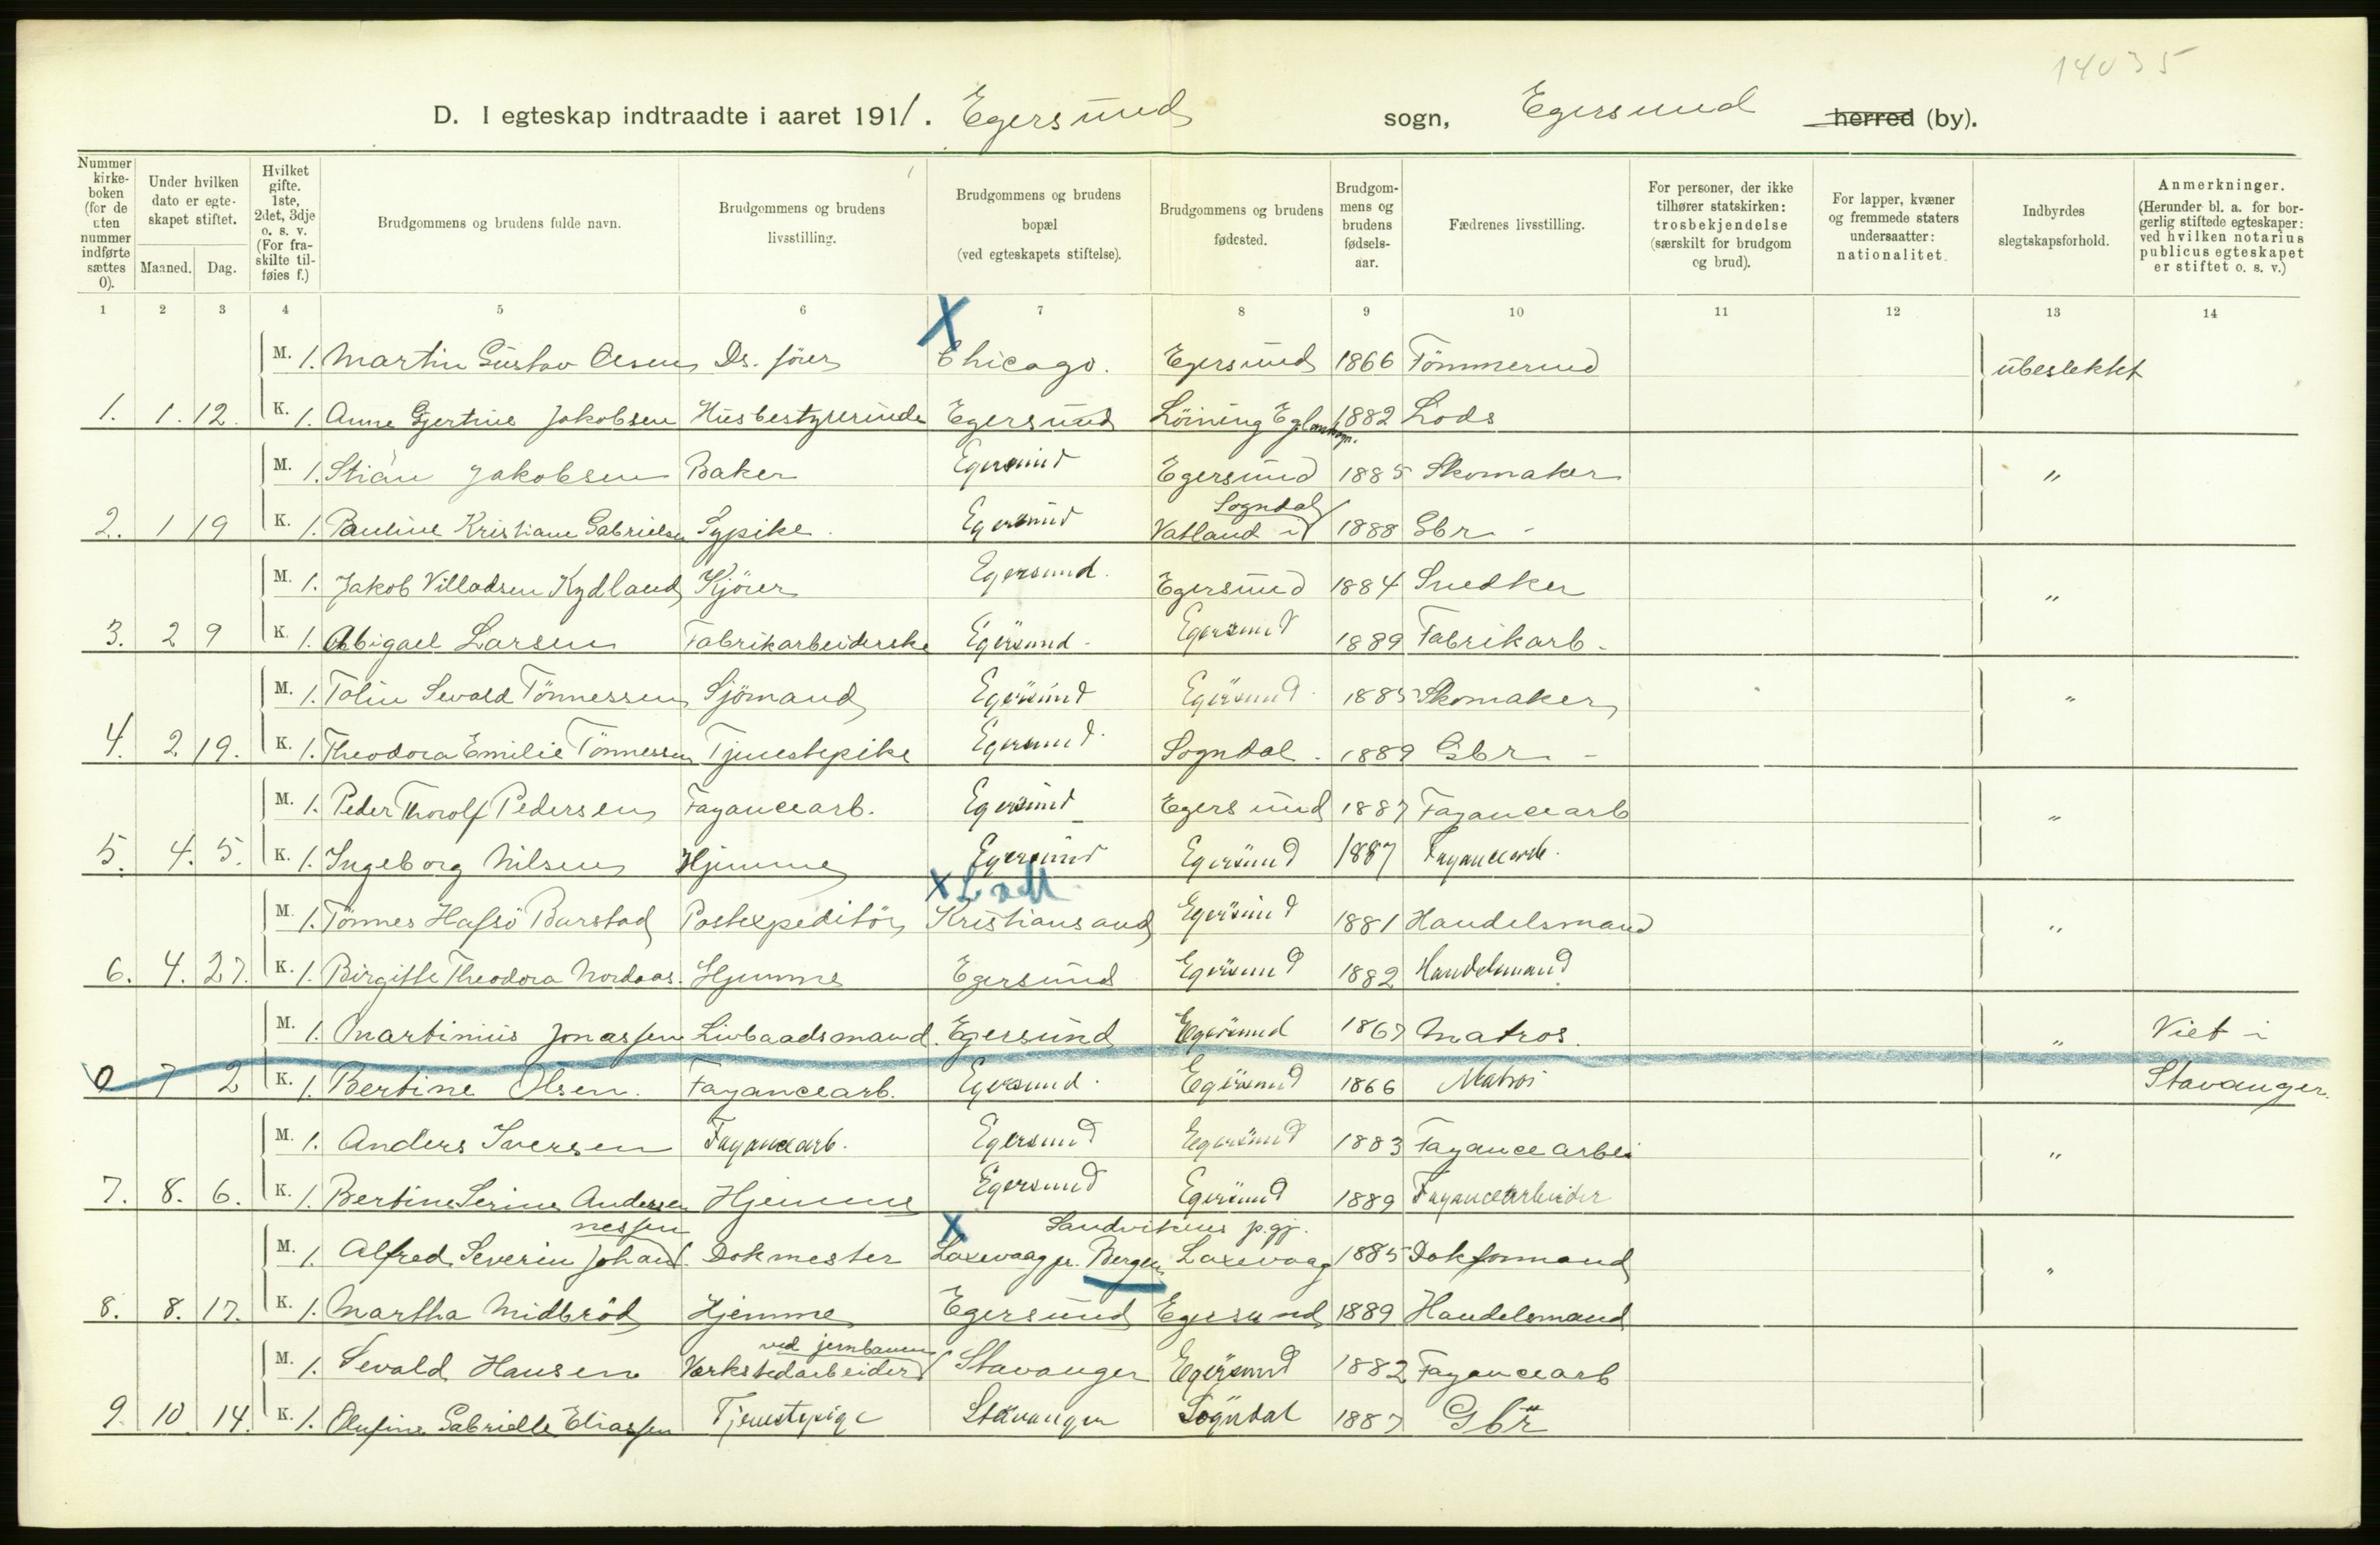 14035
D. I egteskap indtraadte i aaret 1911. Egersund sogn, Egersund herred (by).
Nummer kirkeboken (for de uten nummer indførte sættes 0).
Under hvilken dato er egteskapet stiftet.
Maaned. Dag.
Hvilket gifte. 1ste, 2det, 3dje o. s. v. (For fraskilte tilføies f.)
Brudgommens og brudens fulde navn.
Brudgommens og brudens livsstilling.
Brudgommens og brudens bopæl (ved egteskapets stiftelse).
Brudgommens og brudens fødested.
Brudgommens og brudens fødselsaar.
Fædrenes livsstilling.
For personer, der ikke tilhører statskirken: trosbekjendelse (særskilt for brudgom og brud).
For lapper, kvæner og fremmede staters undersaatter: nationalitet.
Indbyrdes slegtskapsforhold.
Anmerkninger. (Herunder bl. a. for borgerlig stiftede egteskaper: ved hvilken notarius publicus egteskapet er stiftet o. s. v.)
1 2 3 4 5 6 7 8 9 10 11 12 13 14
M. 1. Martin Gustav Olsen Ds. fører X Chicago. Egersund 1866 Tömmermd ubeslektet
1. 1. 12. K. 1. Anne Gjertine Jakobsen Husbestyrerinde Egersund Löining Eg. landsogn. 1882 Lods
M. 1. Stian Jakobsen Baker Egersund Egersund 1885 Skomaker "
Sogndal
2. 1 19 K. 1. Pauline Kristiane Gabrielsen Sypike. Egersund Vatland i 1888 Gbr -
M. 1. Jakob Villadsen Kydland Kjörer Egersund. Egersund 1884 Snedker "
3. 2 9 K. 1. Abigael Larsen Fabrikarbeiderske Egersund. Egersund 1889 Fabrikarb.
M. 1. Tolin Sevald Tönnessen Sjömand Egersund Egersund 1885 Skomaker "
4. 2 19. K. 1. Theodora Emilie Tönnessen Tjenestepike Egersund. Sogndal. 1889 Gbr -
M. 1. Peder Thorolf Pedersen Fayancearb. Egersund Egersund 1887 Fayancearb "
5. 4. 5. K. 1. Ingeborg Nilsen Hjemme Egersund Egersund 1887 Fayancearb.
X
M. 1. Tönnes Hafsö Barstad Postexpeditör Kristiansand Egersund 1881 Handelsmand "
6. 4. 27. K. 1. Birgitte Theodora Nordaas. Hjemme Egersund Egersund 1882 Handelsmand.
M. 1. Martinius Jonassen Livbaadsmand. Egersund Egersund 1867 Matros. " Viet i
0 7 2 K. 1. Bertine Olsen. Fayancearb. Egersund. Egersund 1866 Matros Stavanger.
M. 1. Anders Iversen Fayancearb. Egersund Egersund 1883 Fayancearbei "
7. 8. 6. K. 1. Bertine Serine Andersen Hjemme Egersund Egersund 1889 Fayancearbeider
nessen X Sandvikens p.gj.
M. 1. Alfred Severin Johan Dokmester Laxevaag pr. Bergen Laxevaag 1885 Dokformand "
8. 8. 17. K. 1. Martha Midbröd Hjemme Egersund Egersund 1889 Handelsmand
ved jernbanen
M. 1. Sevald Hansen Verkstedarbeider Stavanger Egersund 1882 Fayancearb
9. 10 14. K. 1. Olufine Gabrielle Eliassen Tjenestepige Stavanger Sogndal 1887 Gbr